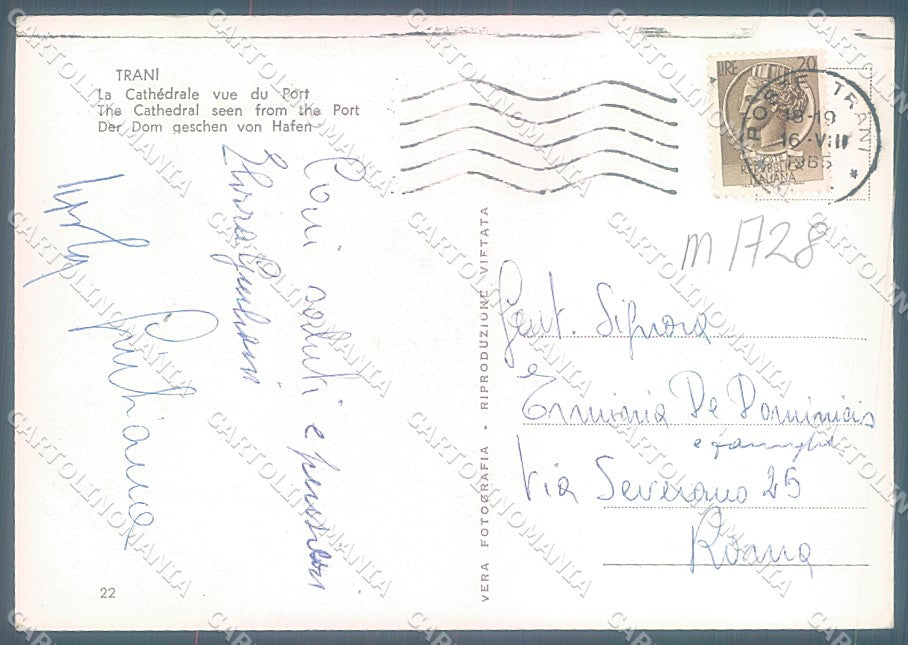 TRANI
La Cathédrale vue du Port
The Cathedral seen from the Port
Der Dom geschen von Hafen
LIRE 20
POSTE TRANI
18-19
16-VIII
1965
ITALIANA
m 1728
Cari saluti e
Giuliana
22
VERA FOTOGRAFIA - RIPRODUZIONE VIETATA
Gent. Signora
Erminia De Dominicis
e famiglia
Via Severano 25
Roma
CARTOLINOMANIA